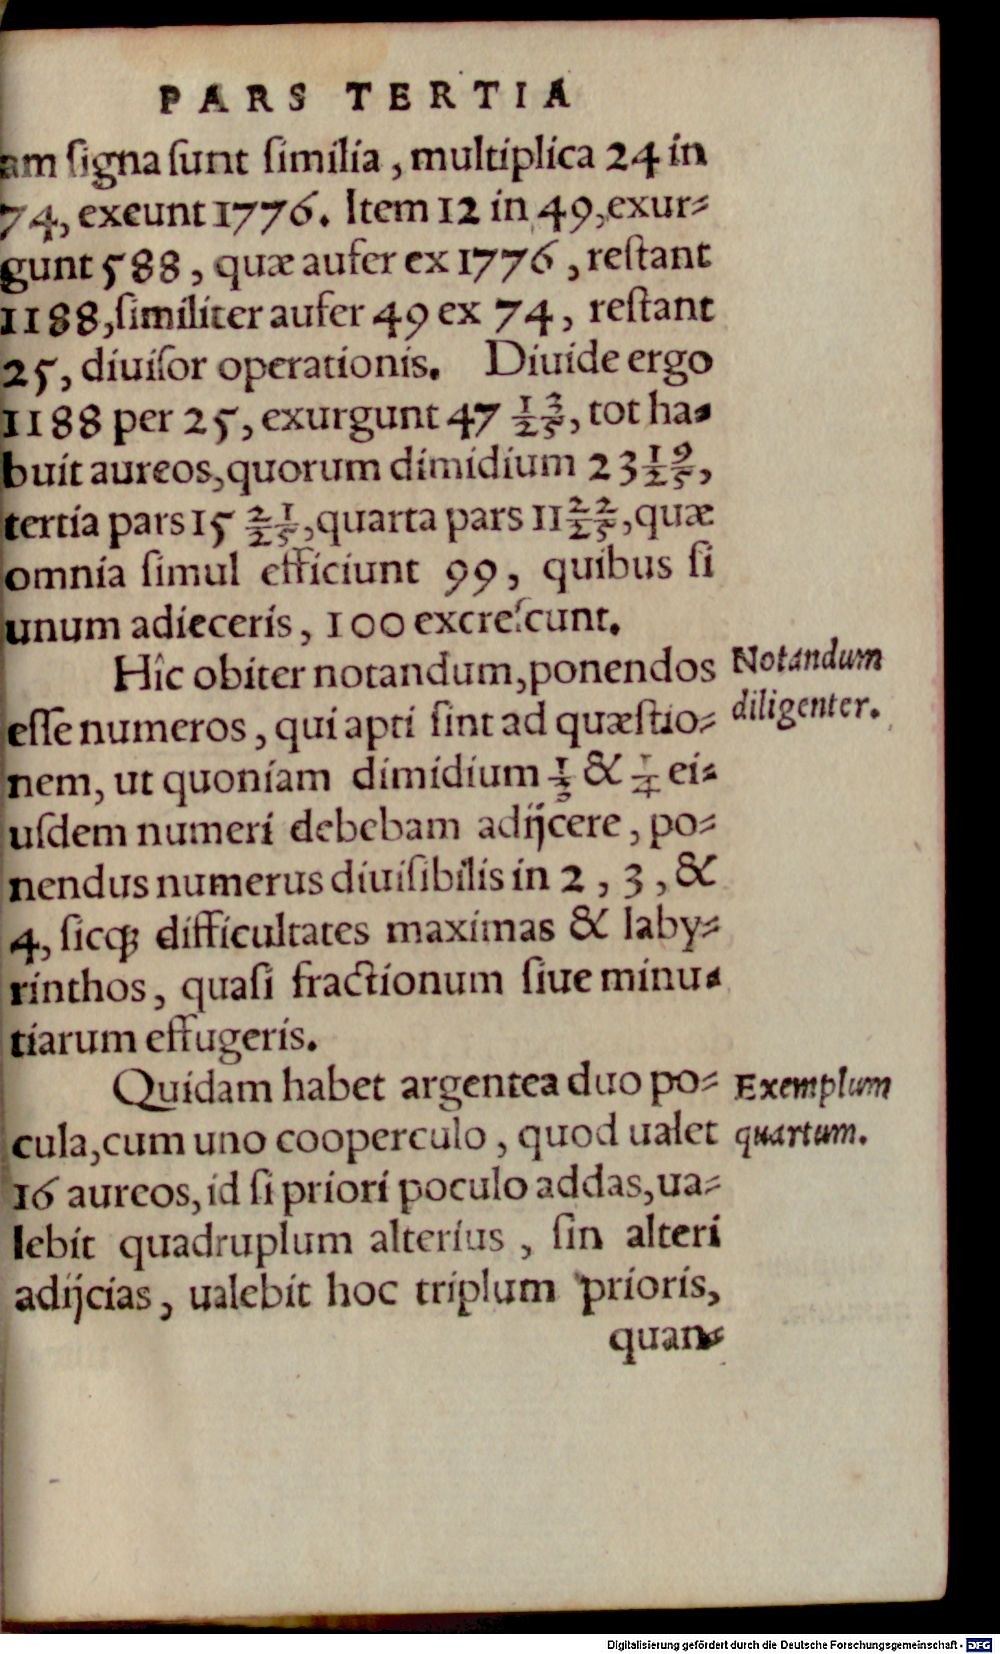 PARS TERTIA
am ſigna ſunt ſimilia, multiplica 24 in
74, exeunt 1776. Item 12 in 49, exur⸗
gunt 588, quæ aufer ex 1776, reſtant
1188, ſimiliter aufer 49 ex 74, reſtant
25, diuiſor operationis. Diuide ergo
1188 per 25, exurgunt 47 13/25, tot ha⸗
buit aureos, quorum dimidium 23 19/25,
tertia pars 15 21/25, quarta pars 11 22/25, quæ
omnia ſimul efficiunt 99, quibus ſi
unum adieceris, 100 excreſcunt.
Hîc obiter notandum, ponendos
eſſe numeros, qui apti ſint ad quæſtio⸗
nem, ut quoniam dimidium 1/3 & 1/4 ei⸗
uſdem numeri debebam adijcere, po⸗
nendus numerus diuiſibilis in 2, 3, &
4, ſicq́; difficultates maximas & laby⸗
rinthos, quaſi fractionum ſiue minu⸗
tiarum effugeris.
Notandum
diligenter.
Quidam habet argentea duo po⸗
cula, cum uno cooperculo, quod ualet
16 aureos, id ſi priori poculo addas, ua⸗
lebit quadruplum alterius, ſin alteri
adijcias, ualebit hoc triplum prioris,
Exemplum
quartum.
quan⸗
Digitalisierung gefördert durch die Deutsche Forschungsgemeinschaft - DFG